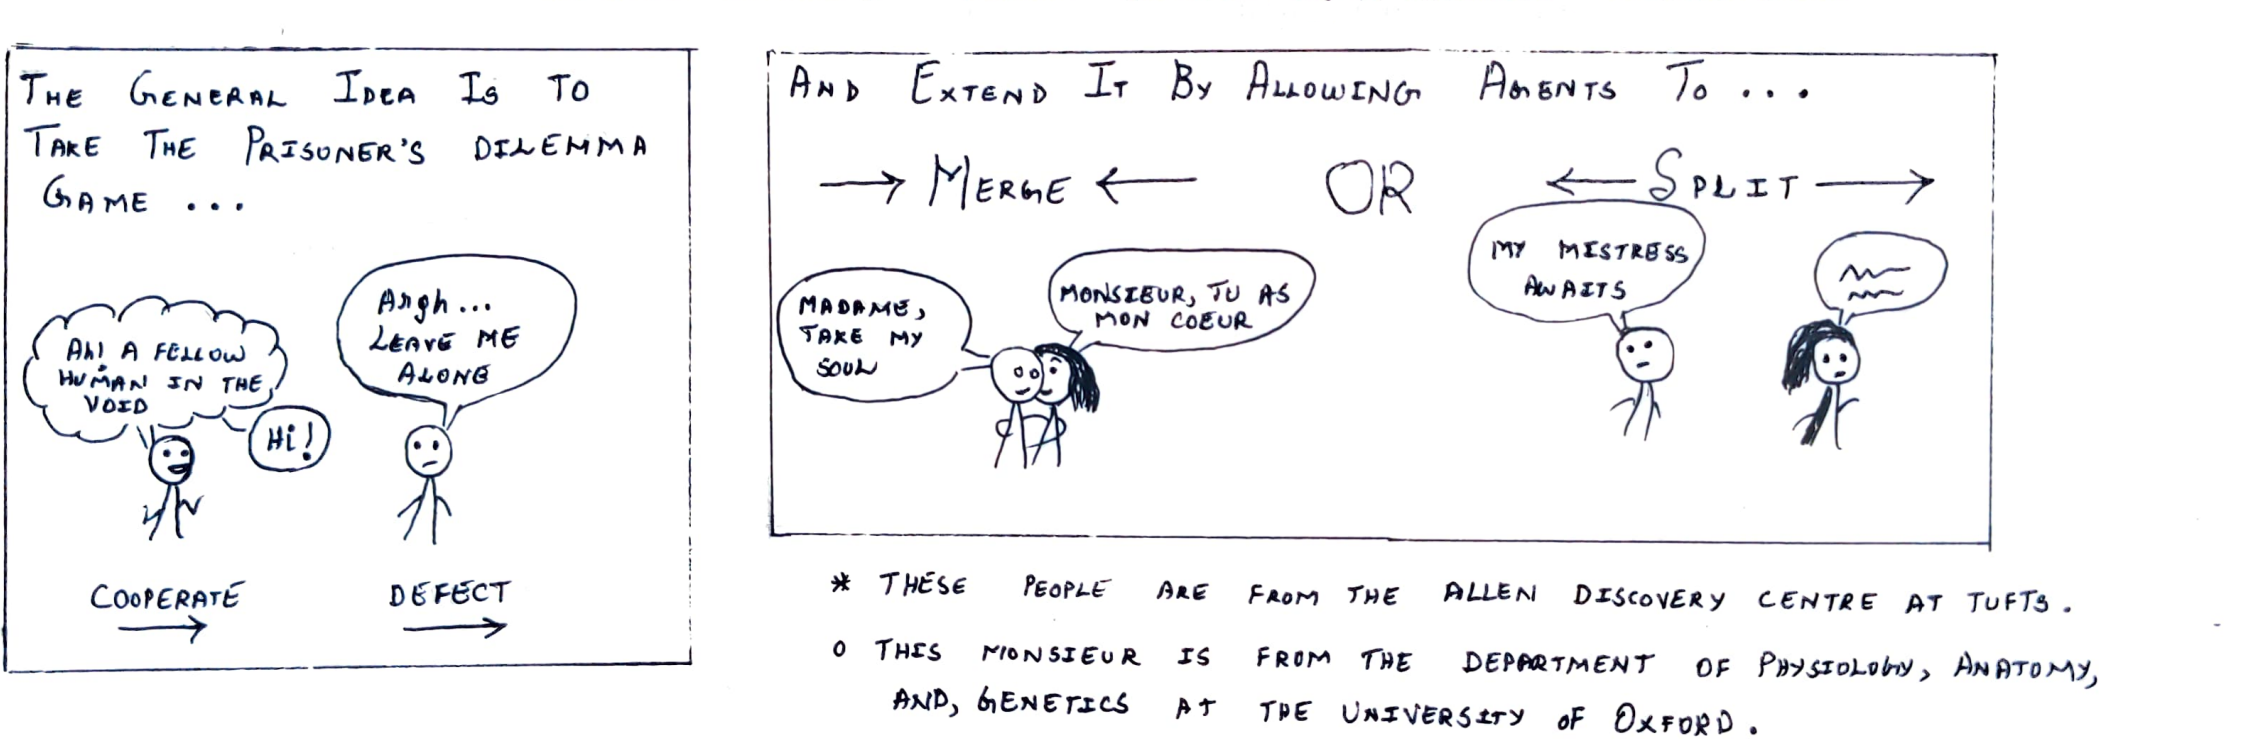 THE GENERAL IDEA IS TO
TAKE THE PRISONER'S DILEMMA
GAME ...
AH! A FELLOW
HUMAN IN THE
VOID
Hi!
Argh...
LEAVE ME
ALONE
COOPERATE
DEFECT
AND EXTEND IT BY ALLOWING AGENTS TO ...
MERGE OR SPLIT
MADAME,
TAKE MY
SOUL
MONSIEUR, TU AS
MON COEUR
MY MISTRESS
AWAITS
* THESE PEOPLE ARE FROM THE ALLEN DISCOVERY CENTRE AT TUFTS.
o THIS MONSIEUR IS FROM THE DEPARTMENT OF PHYSIOLOGY, ANATOMY,
AND, GENETICS AT THE UNIVERSITY OF OXFORD.